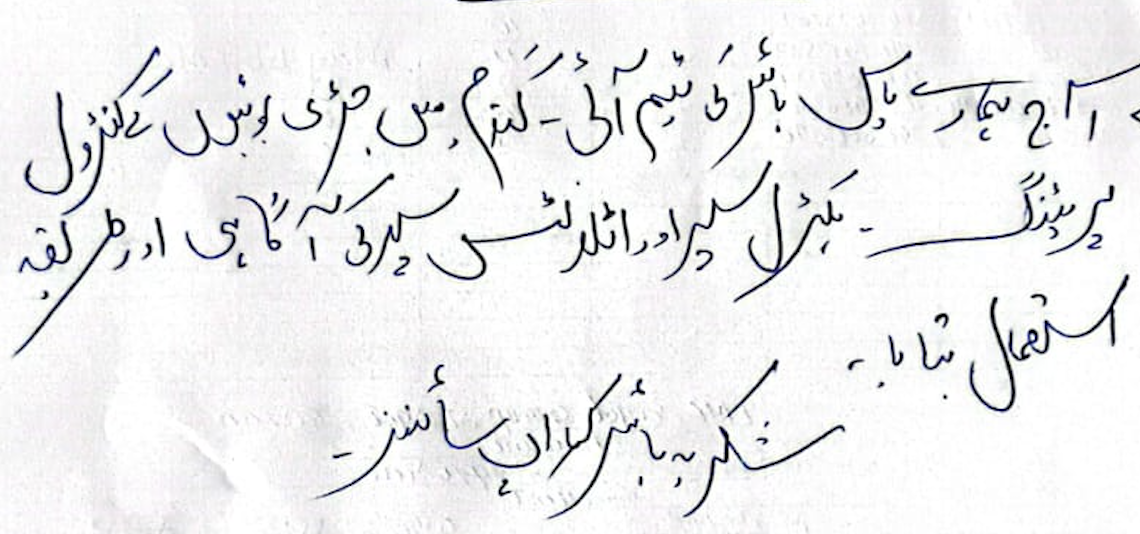 آج ہمارے پاس بائیر کی ٹیم آئی۔ گندم میں جڑی بوٹیوں کے کنٹرول
پر میٹنگ۔ بکٹرل سپر اور اٹلانٹس سپر کی آگاہی اور طریقہ
استعمال بتایا۔
شکریہ بائیر کراپ سائنز۔